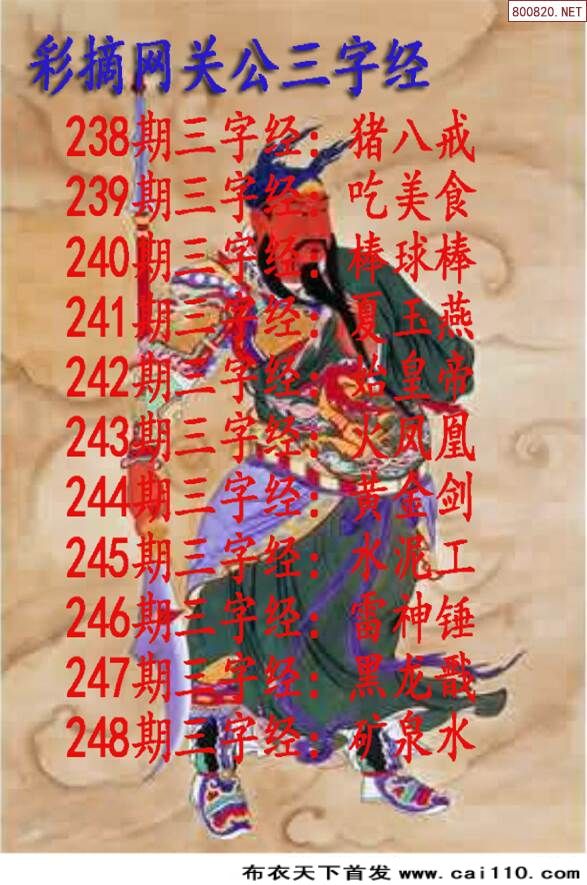 800820.NET
彩摘网关公三字经
238期三字经：猪八戒
239期三字经：吃美食
240期三字经：棒球棒
241期三字经：夏玉燕
242期三字经：始皇帝
243期三字经：火凤凰
244期三字经：黄金剑
245期三字经：水泥工
246期三字经：雷神锤
247期三字经：黑龙戬
248期三字经：矿泉水
布衣天下首发 www.cai110.com